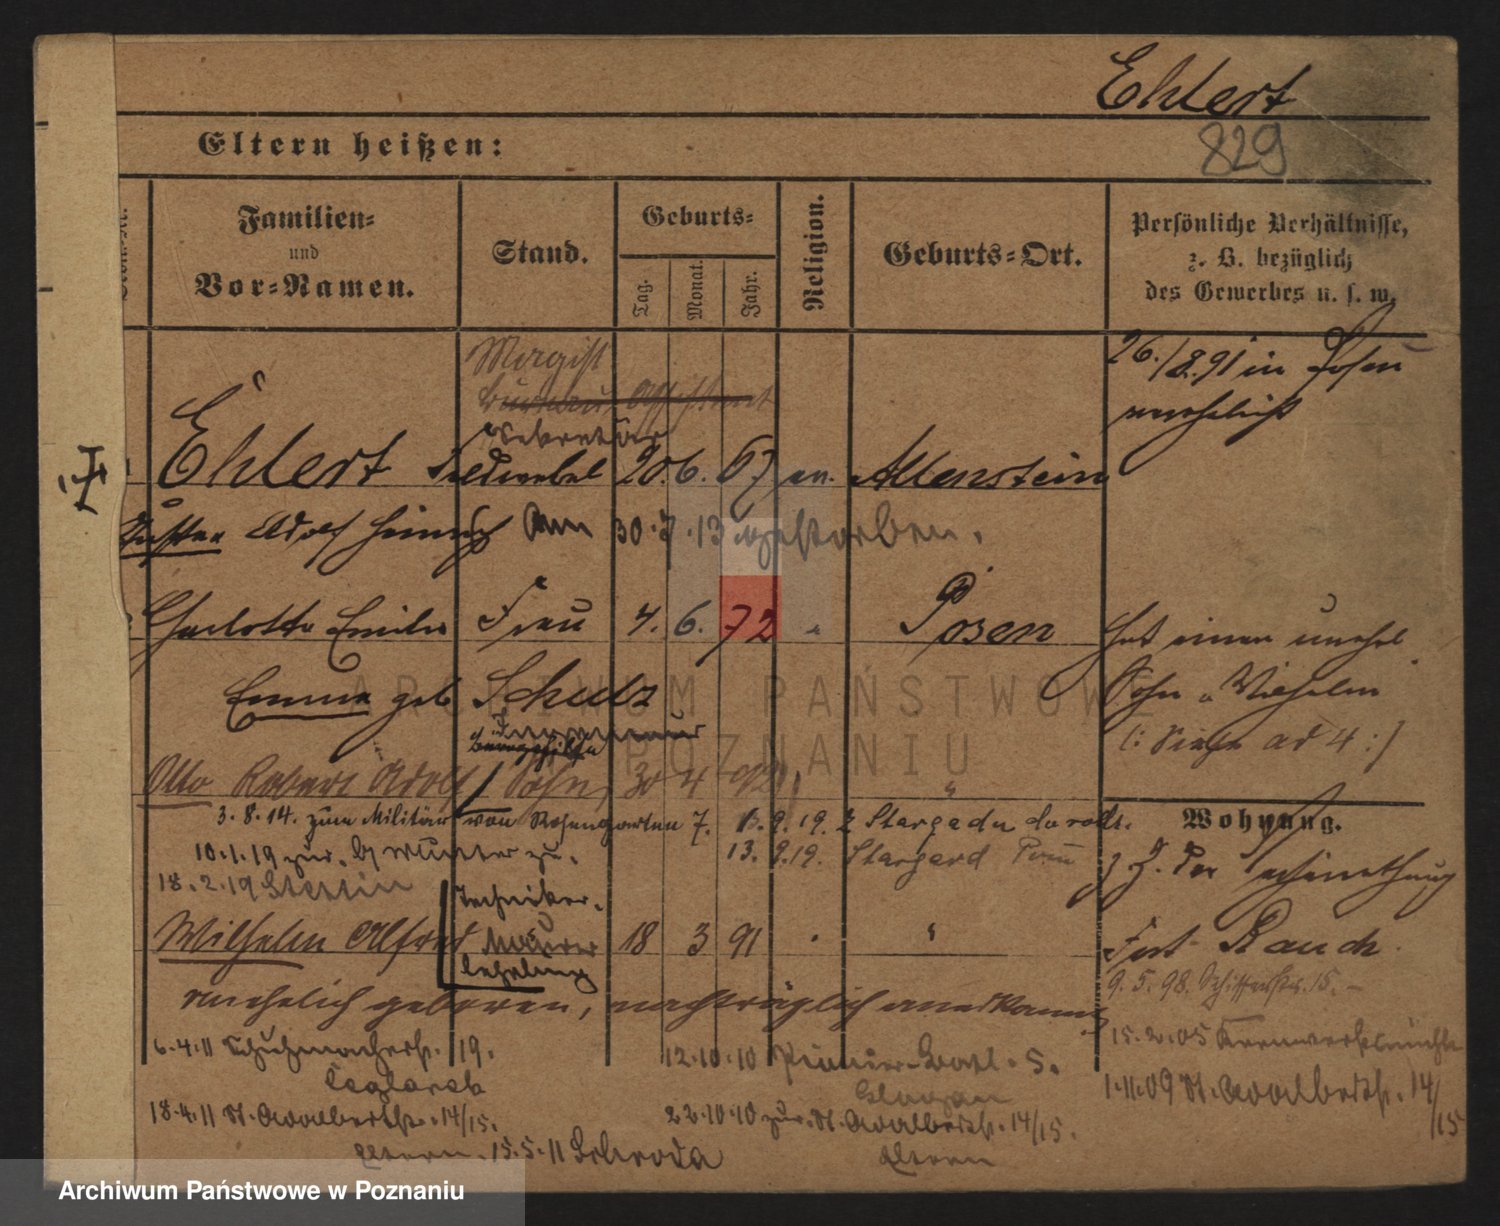 Ehlert
829
Eltern heißen:
Familien=
und
Vor=Namen.
Stand.
Geburts=
Tag.
Monat.
Jahr.
Religion.
Geburts=Ort.
Persönliche Verhältnisse,
z. B. bezüglich
des Gewerbes u. s. w.
Magist
Bureau Assistent
Sekretär
26./8.91 in Posen
verehelicht
Ehlert Feldwebel 20. 6. 67 ev. Allenstein
Gustav Adolf Heinrich Am 30.7.13 gestorben.
Charlotte Emilie Frau 4. 6. 72 " Posen
Emma geb Schulz
Hat einen unehel.
Sohn Wilhelm
(: Siehe ad 4 :)
Otto Robert Adolf Sohn 30 4 92 "
3.8.14. zum Militär von Rosengarten 7. 9.19. Stargard
10.1.19 zur. Mutter zu.
13. 9.19. Stargard Pom
18.2.19 Stettin
Wohnung.
Techniker.
Wilhelm Alfred Maurer 18 3 91 "
lehrling
Fort Rauch
unehelich geboren, nachträglich anerkannt
9. 5. 98. Schifferstr. 15. –
6.4.11 Schuhmacherstr. 19.
Ceglarek
12.10.10 Pionier-Batl. 5.
Glogau
15.2.05
1.11.09 St. Adalbertstr. 14/15
18.4.11 St. Adalbertstr. 14/15.
Eltern. 15.5.11 Schroda
22.10.10 zur. St. Adalbertstr. 14/15.
Eltern
ARCHIWUM PAŃSTWOWE
POZNANIU
Archiwum Państwowe w Poznaniu